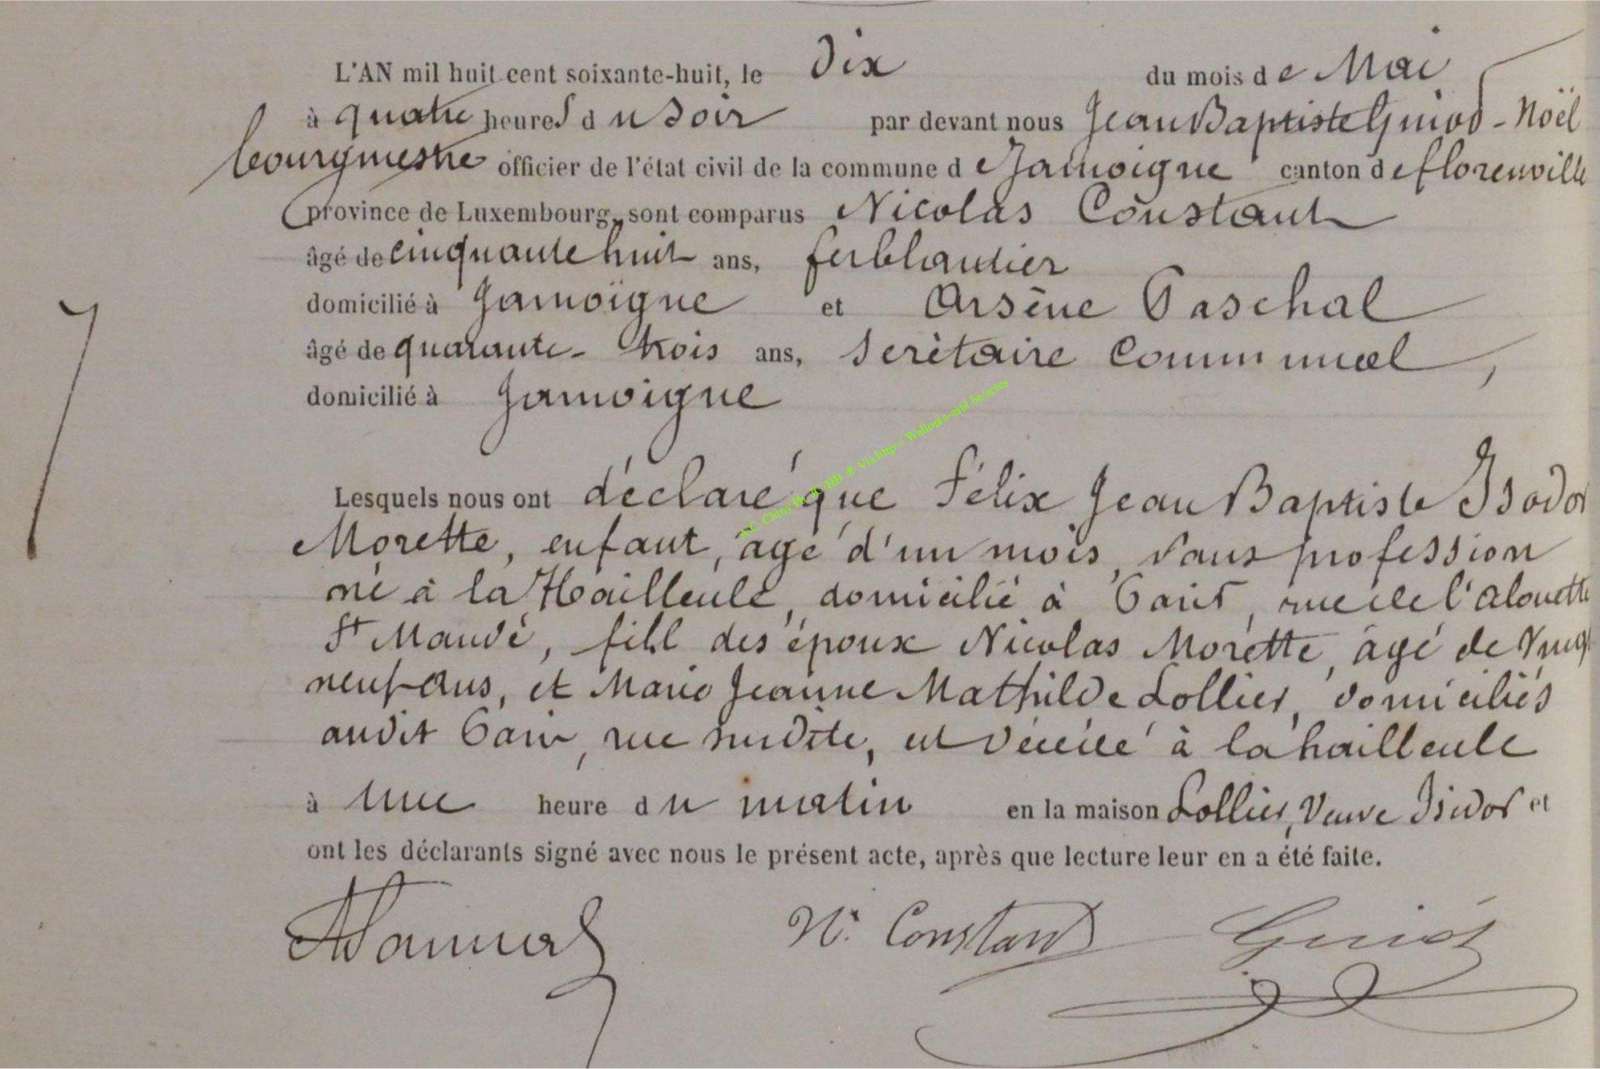 L'AN mil huit cent soixante-huit, le Dix du mois de Mai
à quatre heures du soir par devant nous Jean Baptiste Guiod-Noël
bourgmestre officier de l'état civil de la commune de Jamoigne canton de florenville
province de Luxembourg, sont comparus Nicolas Constant
âgé de cinquante huit ans, ferblantier
domicilié à Jamoigne et Arsène Paschal
âgé de quarante-trois ans, secrétaire Communal,
domicilié à Jamoigne
Lesquels nous ont déclaré que Félix Jean Baptiste Isodor
Morette, enfant, âgé d'un mois, sans profession
né à la Hailleule, domicilié à Paris, rue de l'alouette
St Mandé, fill des époux Nicolas Morette, âgé de Vingt
neuf ans, et Marie Jeanne Mathilde Lollier, domiciliés
audit Paris, rue susdite, est décédé à la hailleule
à une heure du matin en la maison Lollier, Veuve Isidor et
ont les déclarants signé avec nous le présent acte, après que lecture leur en a été faite.
N. Constant Guiod